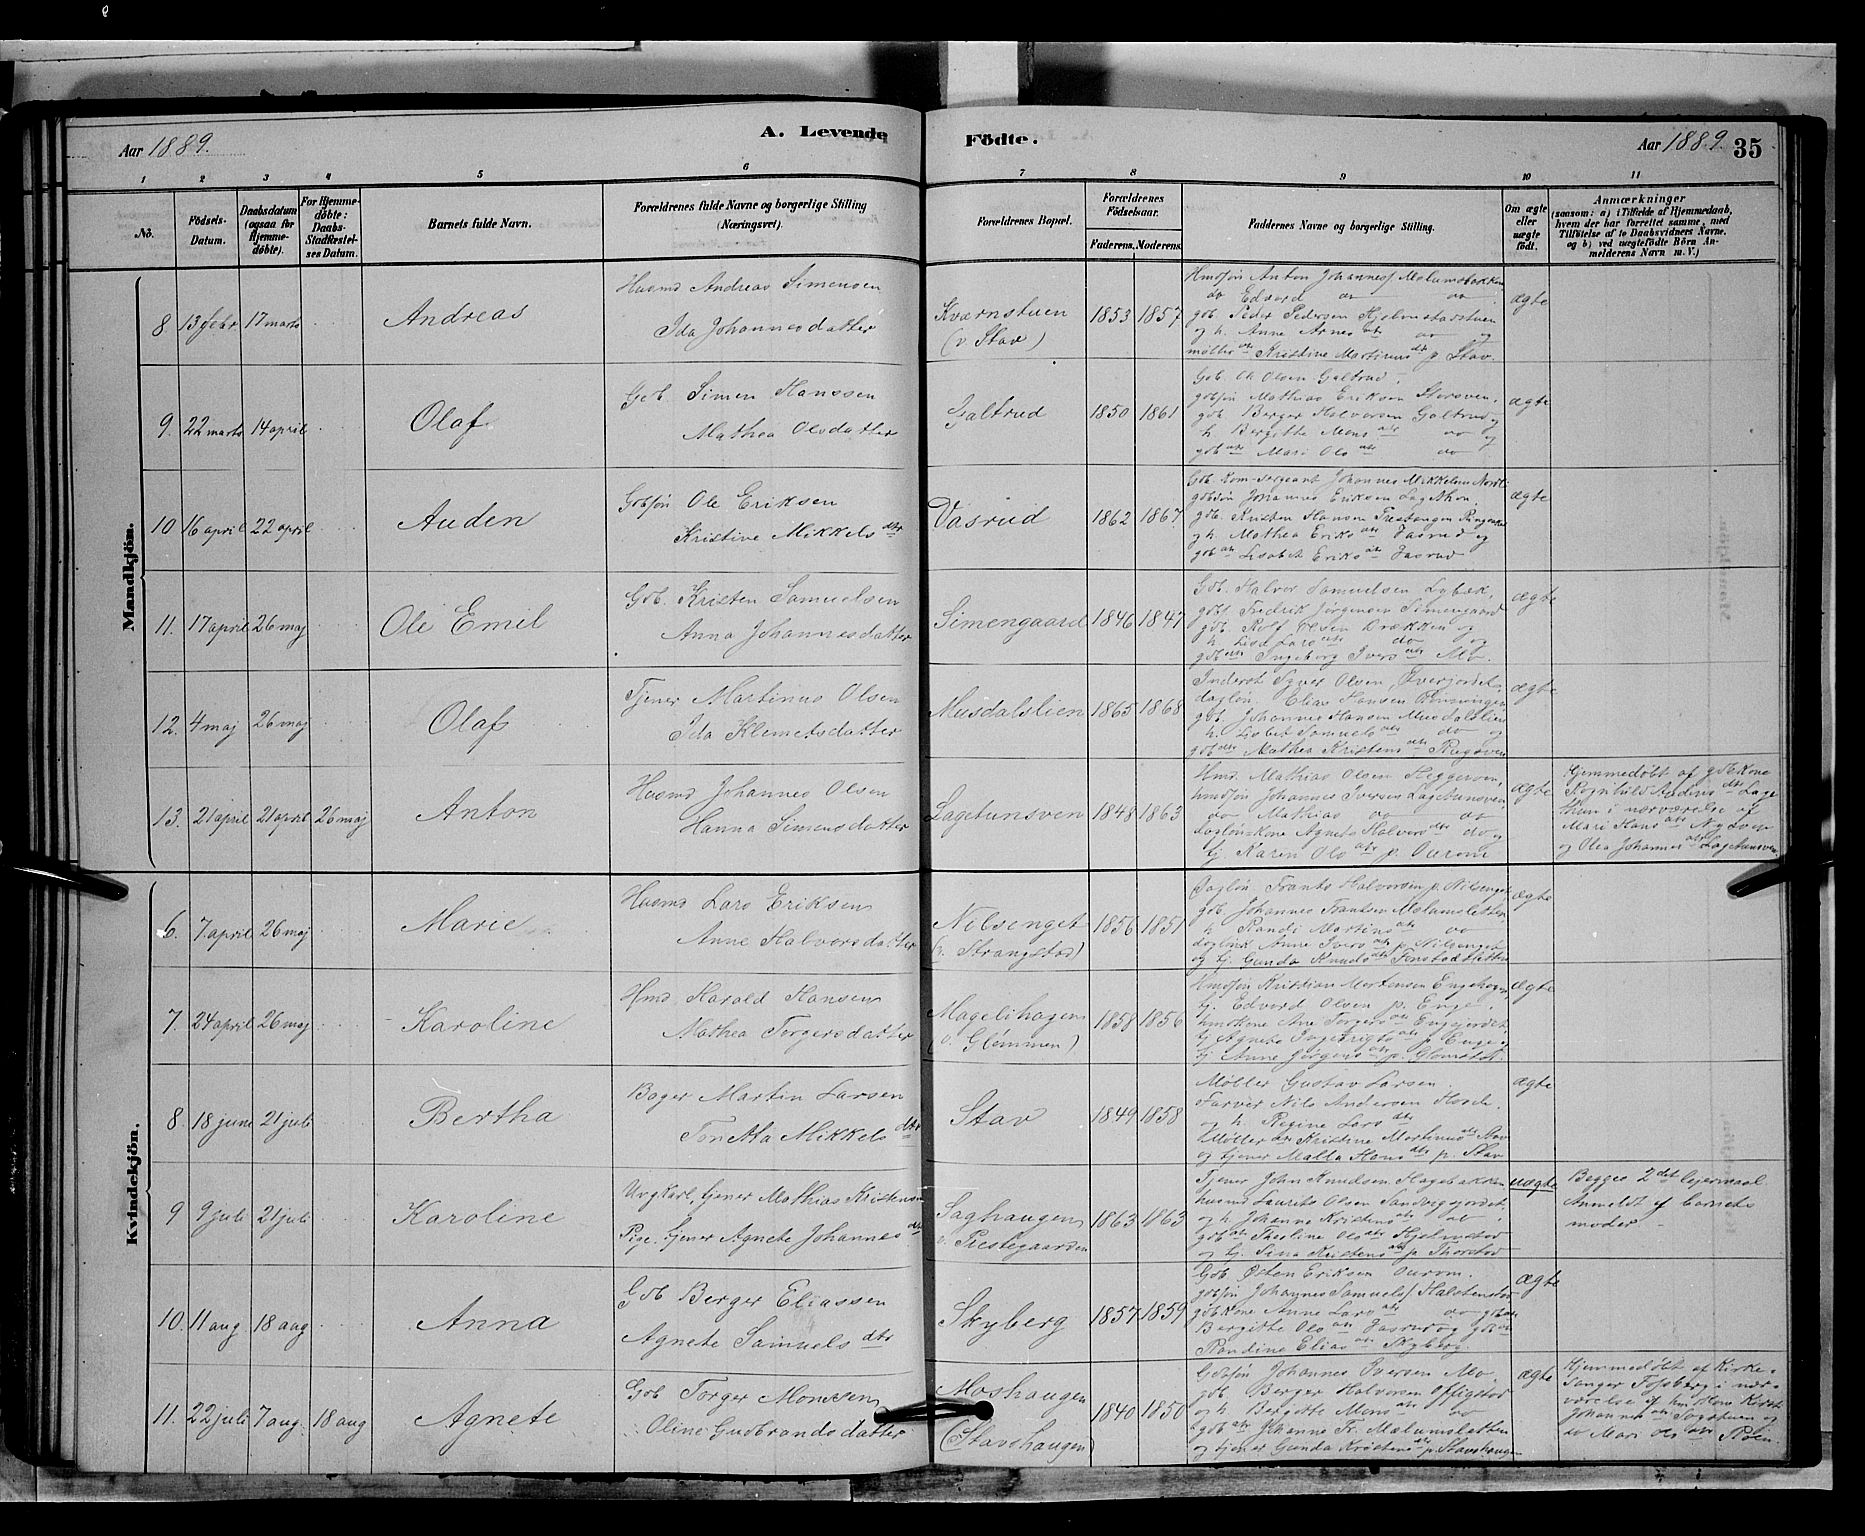 Aar 1889.
A. Levende
Födte.
Aar 1889.
35
1 2 3 4 5 6 7 8 9 10 11
No.
Födsels-Datum.
Daabsdatum (ogsaa for Hjemme-döbte).
For Hjemme-döbte: Daabs-Stadfæstel-ses Datum.
Barnets fulde Navn.
Forældrenes fulde Navne og borgerlige Stilling (Næringsvei).
Forældrenes Bopæl.
Forældrenes Födselsaar.
Faderens. Moderens.
Faddernes Navne og borgerlige Stilling.
Om ægte eller uægte födt.
Anmærkninger
(saasom: a) i Tilfælde af Hjemmedaab,
hvem der har forrettet samme, med
Tilföielse af to Daabsvidners Navne.
og b) ved uægtefödte Börn An-
melderens Navn m. V.)
Mandkjön.
8 13 febr 17 marts Andreas
Husmd Andreas Simensen
Ida Johannesdatter
Kværnstuen
(v Stav)
1853 1857
Hmdsøn Anton Johannes Mælumsbakken
do Edvard do do
gdb. Peder Pedersen Hjelmstadstuen
og h. Anne Arnes dtr do og
møller dtr Kristine Martinus dtr p. Stav.
ægte
9. 22 marts 14 april Olaf
Gdb Simen Hanssen
Mathea Olsdatter
Galtrud
1850 1861
Gdb. Ole Olsen Galtrud,
gdbsøn Mathias Eriksen
gdb. Berger Halvorsen Galtrud og
h. Bergitte Mons dtr do og
gdb dtr Mari Ols dtr do
ægte
10 16 april 22 april Auden
Gdbsøn Ole Eriksen
Kristine Mikkels dtr
Vasrud
1862 1867
Gdb. Kom-sergeant Johannes Mikkelsen Nordli
gdbsøn Johannes Eriksen
gdb. Kristen Hansen
og h. Mathea Eriks dtr Vasrud og
gdb dtr Lisabet Eriks dtr Vasrud
ægte
11. 17 april 26 maj Ole Emil
Gdb. Kristen Samuelsen
Anna Johannesdatter
Simengaard
1846 1847
Gdb. Halvor Samuelsen Lybæk,
gdbs. Fredrik Jørgensen Simengaard
gdb. Rolf Olsen Brækken og
h. Lisa Lars dtr do og
gdb dtr Ingeborg Ivers dtr Mo.
ægte
12. 4 maj 26 maj Olaf
Tjener Martinus Olsen
Ida Klemetsdatter
Musdalslien
1865 1868
Inderst Syver Olsen
dagløn. Elias Hansen
gdb. Johannes Hansen Musdalslien
h. Lisbet Samuels dtr do og
gdb dtr Mathea Kristens dtr
ægte
13. 21 april 21 april 26 maj Anton
Husmd Johannes Olsen
Hanna Simensdatter
Lagetunsven
1848 1863
Hmd. Mathias Olsen Heggerven,
hmdsøn Johannes Iversen Lagetunsven
do Mathias do do
dagløn-kone Agnete Halvors dtr do og
tj. Karen Ols dtr p. Ourom
ægte
Hjemmedøbt af gdbkone
Ragnhild Audens dtr
i nærværelse af
Mari Hans dtr
og Olea Johannes dtr Lagetunsven.
Kvindekjön.
6. 7. april 26 maj Marie
Husmd Lars Eriksen
Anne Halvorsdatter
Nilsenget
(v. Strangstad)
1856 1851
Dagløn Frants Halvorsen p. Nilsenget
gdb. Johannes Frantsen Mælumsletten
h. Randi Martins dtr do
Anne Ivers dtr p. Nilsenget
og tj. Gunda Knuds dtr
ægte
7. 24 april 26 maj Karoline
Hmd. Harald Hansen
Mathea Torgersdatter
Magelihagen
(v. Glemmen)
1858 1856
Hmdsøn Kristian Mortensen Engehagen,
tj. Edvard Olsen p. Enge,
hmdkone Ane Torgers dtr Engejordet
tj Agnete Ingebrigts dtr p. Enge
tj Anne Jørgens dtr p. Glomstad.
ægte
8. 18 june 21 juli Bertha
Bager Martin Larsen
Tonetta Mikkels dtr
Stav
1849 1858
Møller Gustav Larsen.
Farver Nils Andersen
og h. Regine Lars dtr
Møller dtr Kristine Martinus dtr Stav
og tjener Malla Hans dtr p. Stav
ægte
9 9 juli 21 juli Karoline
Ungkarl, tjener Mathias Kristensen
Pige, tjener Agnete Johannes dtr
Saghaugen
v. Prestegaarden
1863 1863
Tjener John Knudsen Hagebakken
husmd Laurits Olsen Sandvigsjordet,
og h. Johanne Kristens dtr do
gdb dtr Theoline Ols dtr Hjelmstad
og tj. Sina Kristens dtr p. Thorstad
uægte
Begges 2det lejermaal
Anmeldt af barnets
moder.
10. 11 aug 18 aug Anna
Gdb Berger Eliassen
Agnete Samuels dtr
Skyberg
1857 1859
Gdb. Østen Eriksen Ourom.
gdbsøn Johannes Samuels. Halstenstad
gdbkone Anne Lars dtr do gdb dtr
Bergitte Ols dtr Vasrud og gdb dtr
Randine Elias dtr Skyberg.
ægte
11. 22 juli 7 aug. 18 aug Agnete
Gdb Torger Monssen
Oline Gudbrandsdatter
Moshaugen
(Stavshaugen)
1840 1850
Gdbsøn Johannes Iversen Mo.
gdb. Berger Halvorsen Offigstad
og h. Bergitte Mons dtr do
gdb dtr Johanne Fr. Mælumsletten
og tjener Gunda Kristens dtr p. Stavshaugen
ægte
Hjemmedøbt af Kirke-
sanger Fossberg i nær-
værelse af
Johannes dtr og
do Mari Ols dtr Röin.